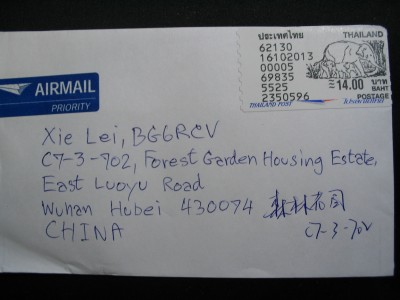 AIRMAIL
PRIORITY
ประเทศไทย THAILAND
62130
16102013
00005
69835
5525
2350596
14.00 บาท
BAHT
POSTAGE
THAILAND POST
Xie Lei, BG6RCV
C7-3-702, Forest Garden Housing Estate,
East Luoyu Road
Wuhan Hubei 430074 森林花园
CHINA C7-3-702